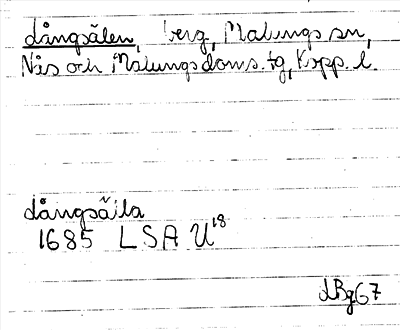 Långsälen, berg, Malungs sn,
Nås och Malungs doms. tg, Kopp. l.
Långsäila
1685 LSA U18
LBg67